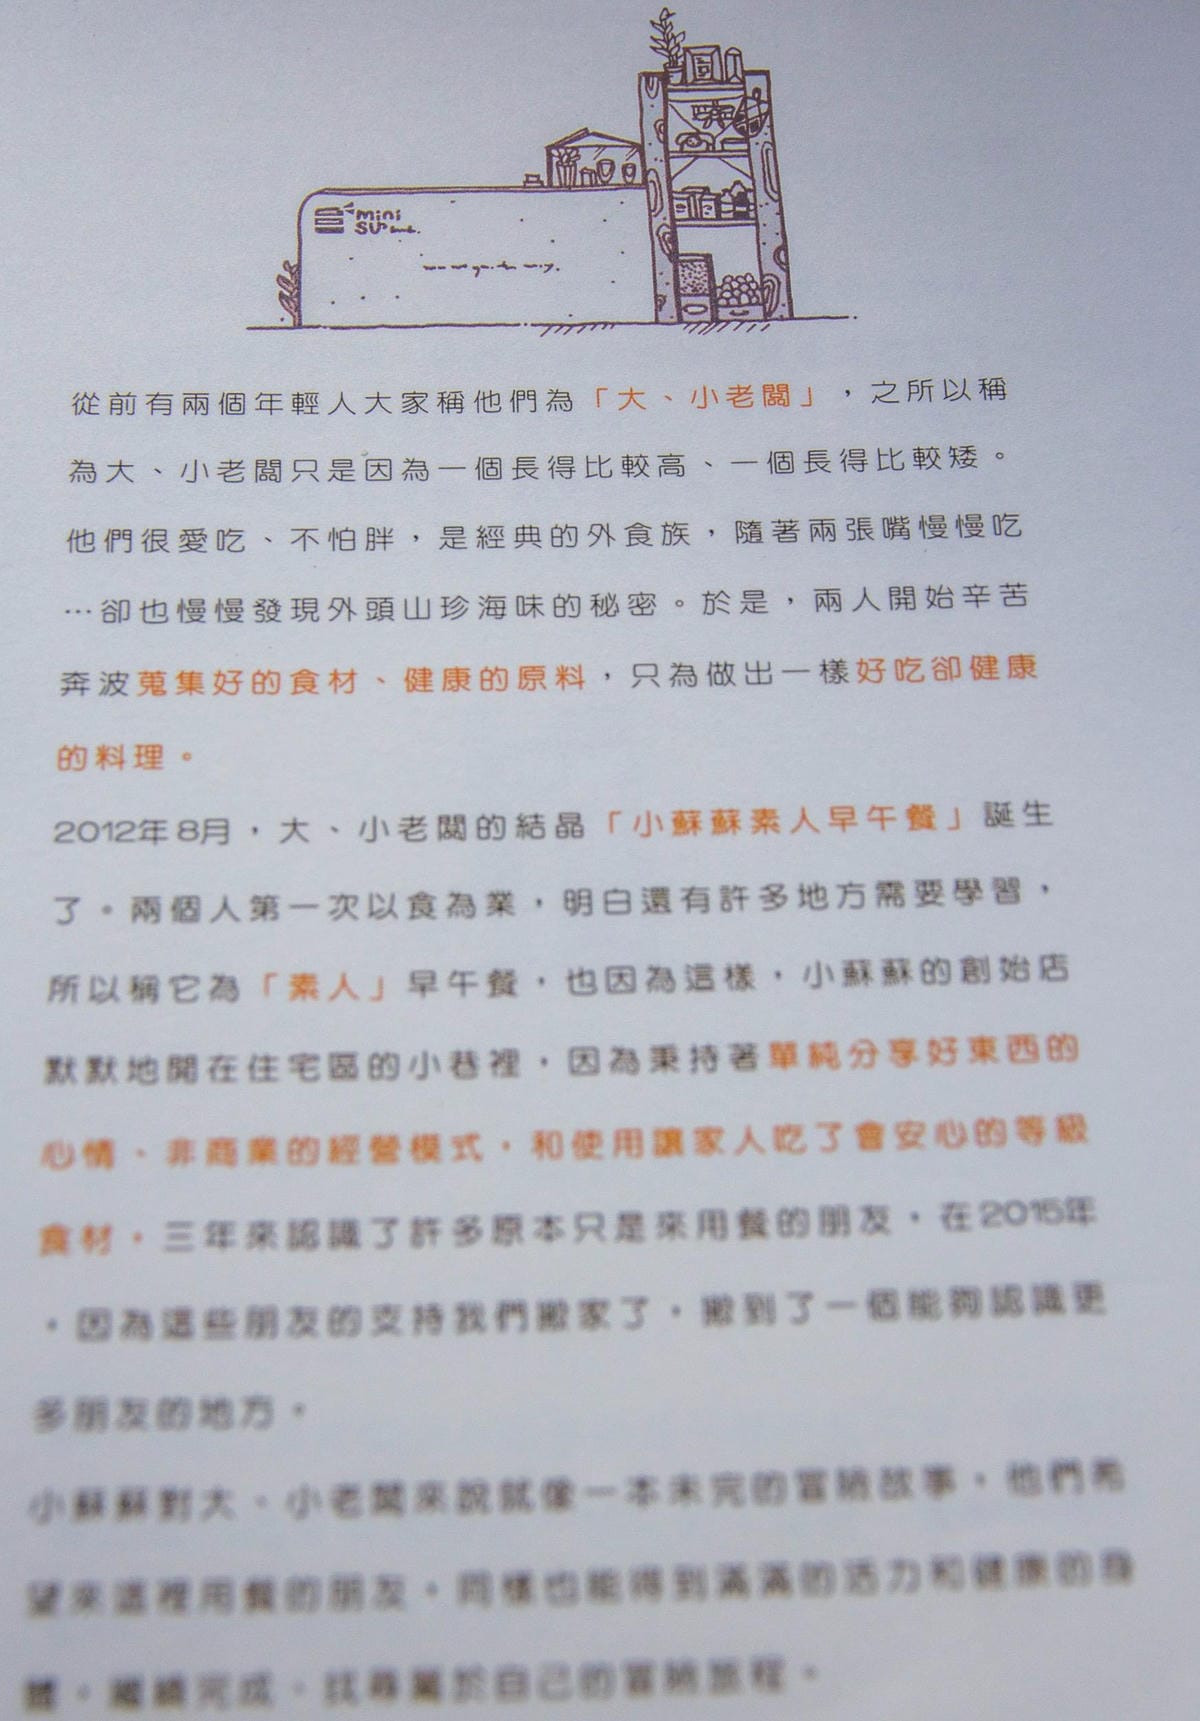 mini
SU
從前有兩個年輕人大家稱他們為「大、小老闆」，之所以稱
為大、小老闆只是因為一個長得比較高、一個長得比較矮。
他們很愛吃、不怕胖，是經典的外食族，隨著兩張嘴慢慢吃
…卻也慢慢發現外頭山珍海味的秘密。於是，兩人開始辛苦
奔波蒐集好的食材、健康的原料，只為做出一樣好吃卻健康
的料理。
2012年8月，大、小老闆的結晶「小蘇蘇素人早午餐」誕生
了。兩個人第一次以食為業，明白還有許多地方需要學習，
所以稱它為「素人」早午餐，也因為這樣，小蘇蘇的創始店
默默地開在住宅區的小巷裡，因為秉持著單純分享好東西的
心情、非商業的經營模式，和使用讓家人吃了會安心的等級
食材，三年來認識了許多原本只是來用餐的朋友，在2015年
，因為這些朋友的支持我們搬家了，搬到了一個能夠認識更
多朋友的地方。
小蘇蘇對大、小老闆來說就像一本未完的冒險故事，他們希
望來這裡用餐的朋友，同樣也能得到滿滿的活力和健康的身
體，繼續完成、找尋屬於自己的冒險旅程。